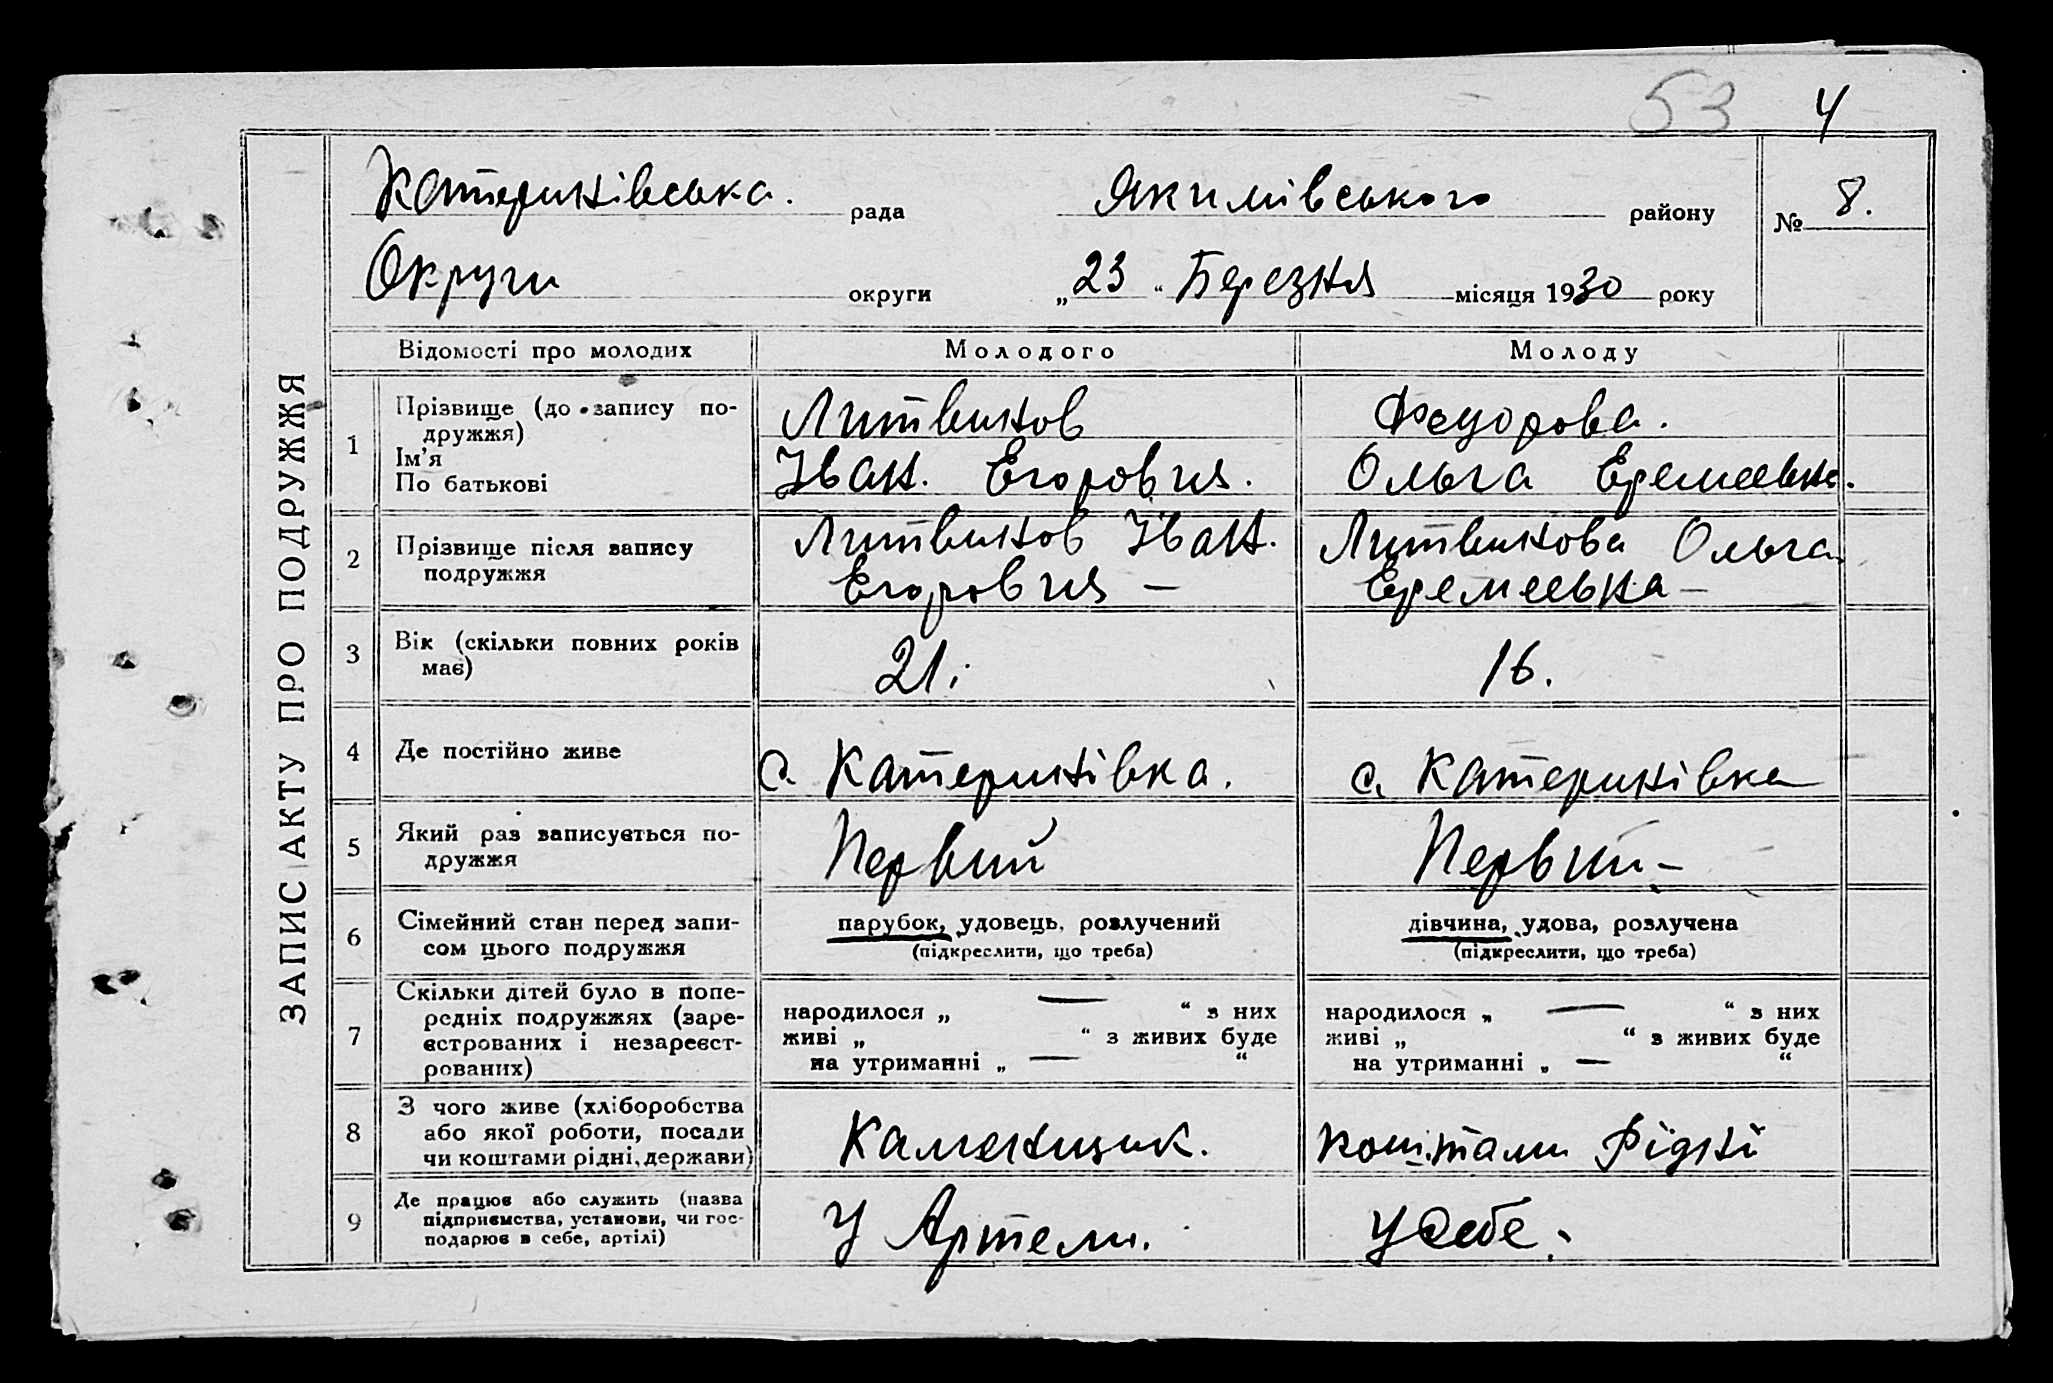 53 4
Катеринівська. рада Якимівського району № 8.
Округи округи „23“ Березня місяця 1930 року
ЗАПИС АКТУ ПРО ПОДРУЖЖЯ
Відомості про молодих Молодого Молоду
1 Прізвище (до запису по-
дружжя)
Ім'я
По батькові
Литвинов
Іван. Егорович.
Федорова.
Ольга Еремеевна.
2 Прізвище після запису
подружжя
Литвинов Іван.
Егорович —
Литвинова Ольга
Еремеевна —
3 Вік (скільки повних років
має)
21.
16.
4 Де постійно живе
с. Катеринівка.
с. Катеринівка
5 Який раз записується по-
дружжя
Первий
Первий —
6 Сімейний стан перед запи-
сом цього подружжя
парубок, удовець, розлучений
(підкреслити, що треба)
дівчина, удова, розлучена
(підкреслити, що треба)
7 Скільки дітей було в попе-
редніх подружжях (заре-
єстрованих і незареєст-
рованих)
народилося „ — “ з них
живі „ “ з живих буде
на утриманні „ — “
народилося „ — “ з них
живі „ “ з живих буде
на утриманні „ — “
8 З чого живе (хліборобства
або якої роботи, посади
чи коштами рідні, держави)
Каменщик.
коштами Рідні
9 Де працює або служить (назва
підприємства, установи, чи гос-
подарює в себе, артілі)
У Артели.
У себе.